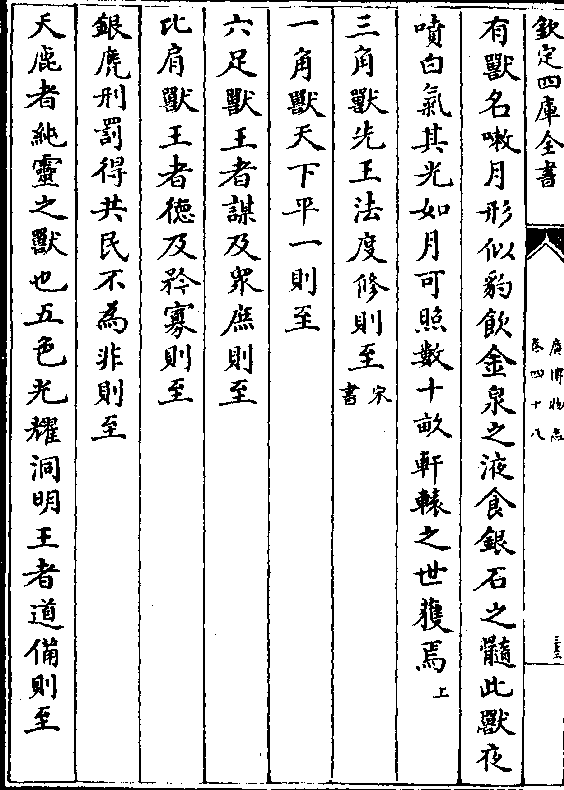 欽定四庫全書
廣博物志
卷四十八
有獸名嗽月形似豹飲金泉之液食銀石之髓此獸夜
噴白氣其光如月可照數十畝軒轅之世獲焉上
三角獸先王法度修則至宋書
一角獸天下平一則至
六足獸王者謀及衆庶則至
比肩獸王者德及矜寡則至
銀麂刑罰得共民不為非則至
天鹿者純靈之獸也五色光耀洞明王者道備則至